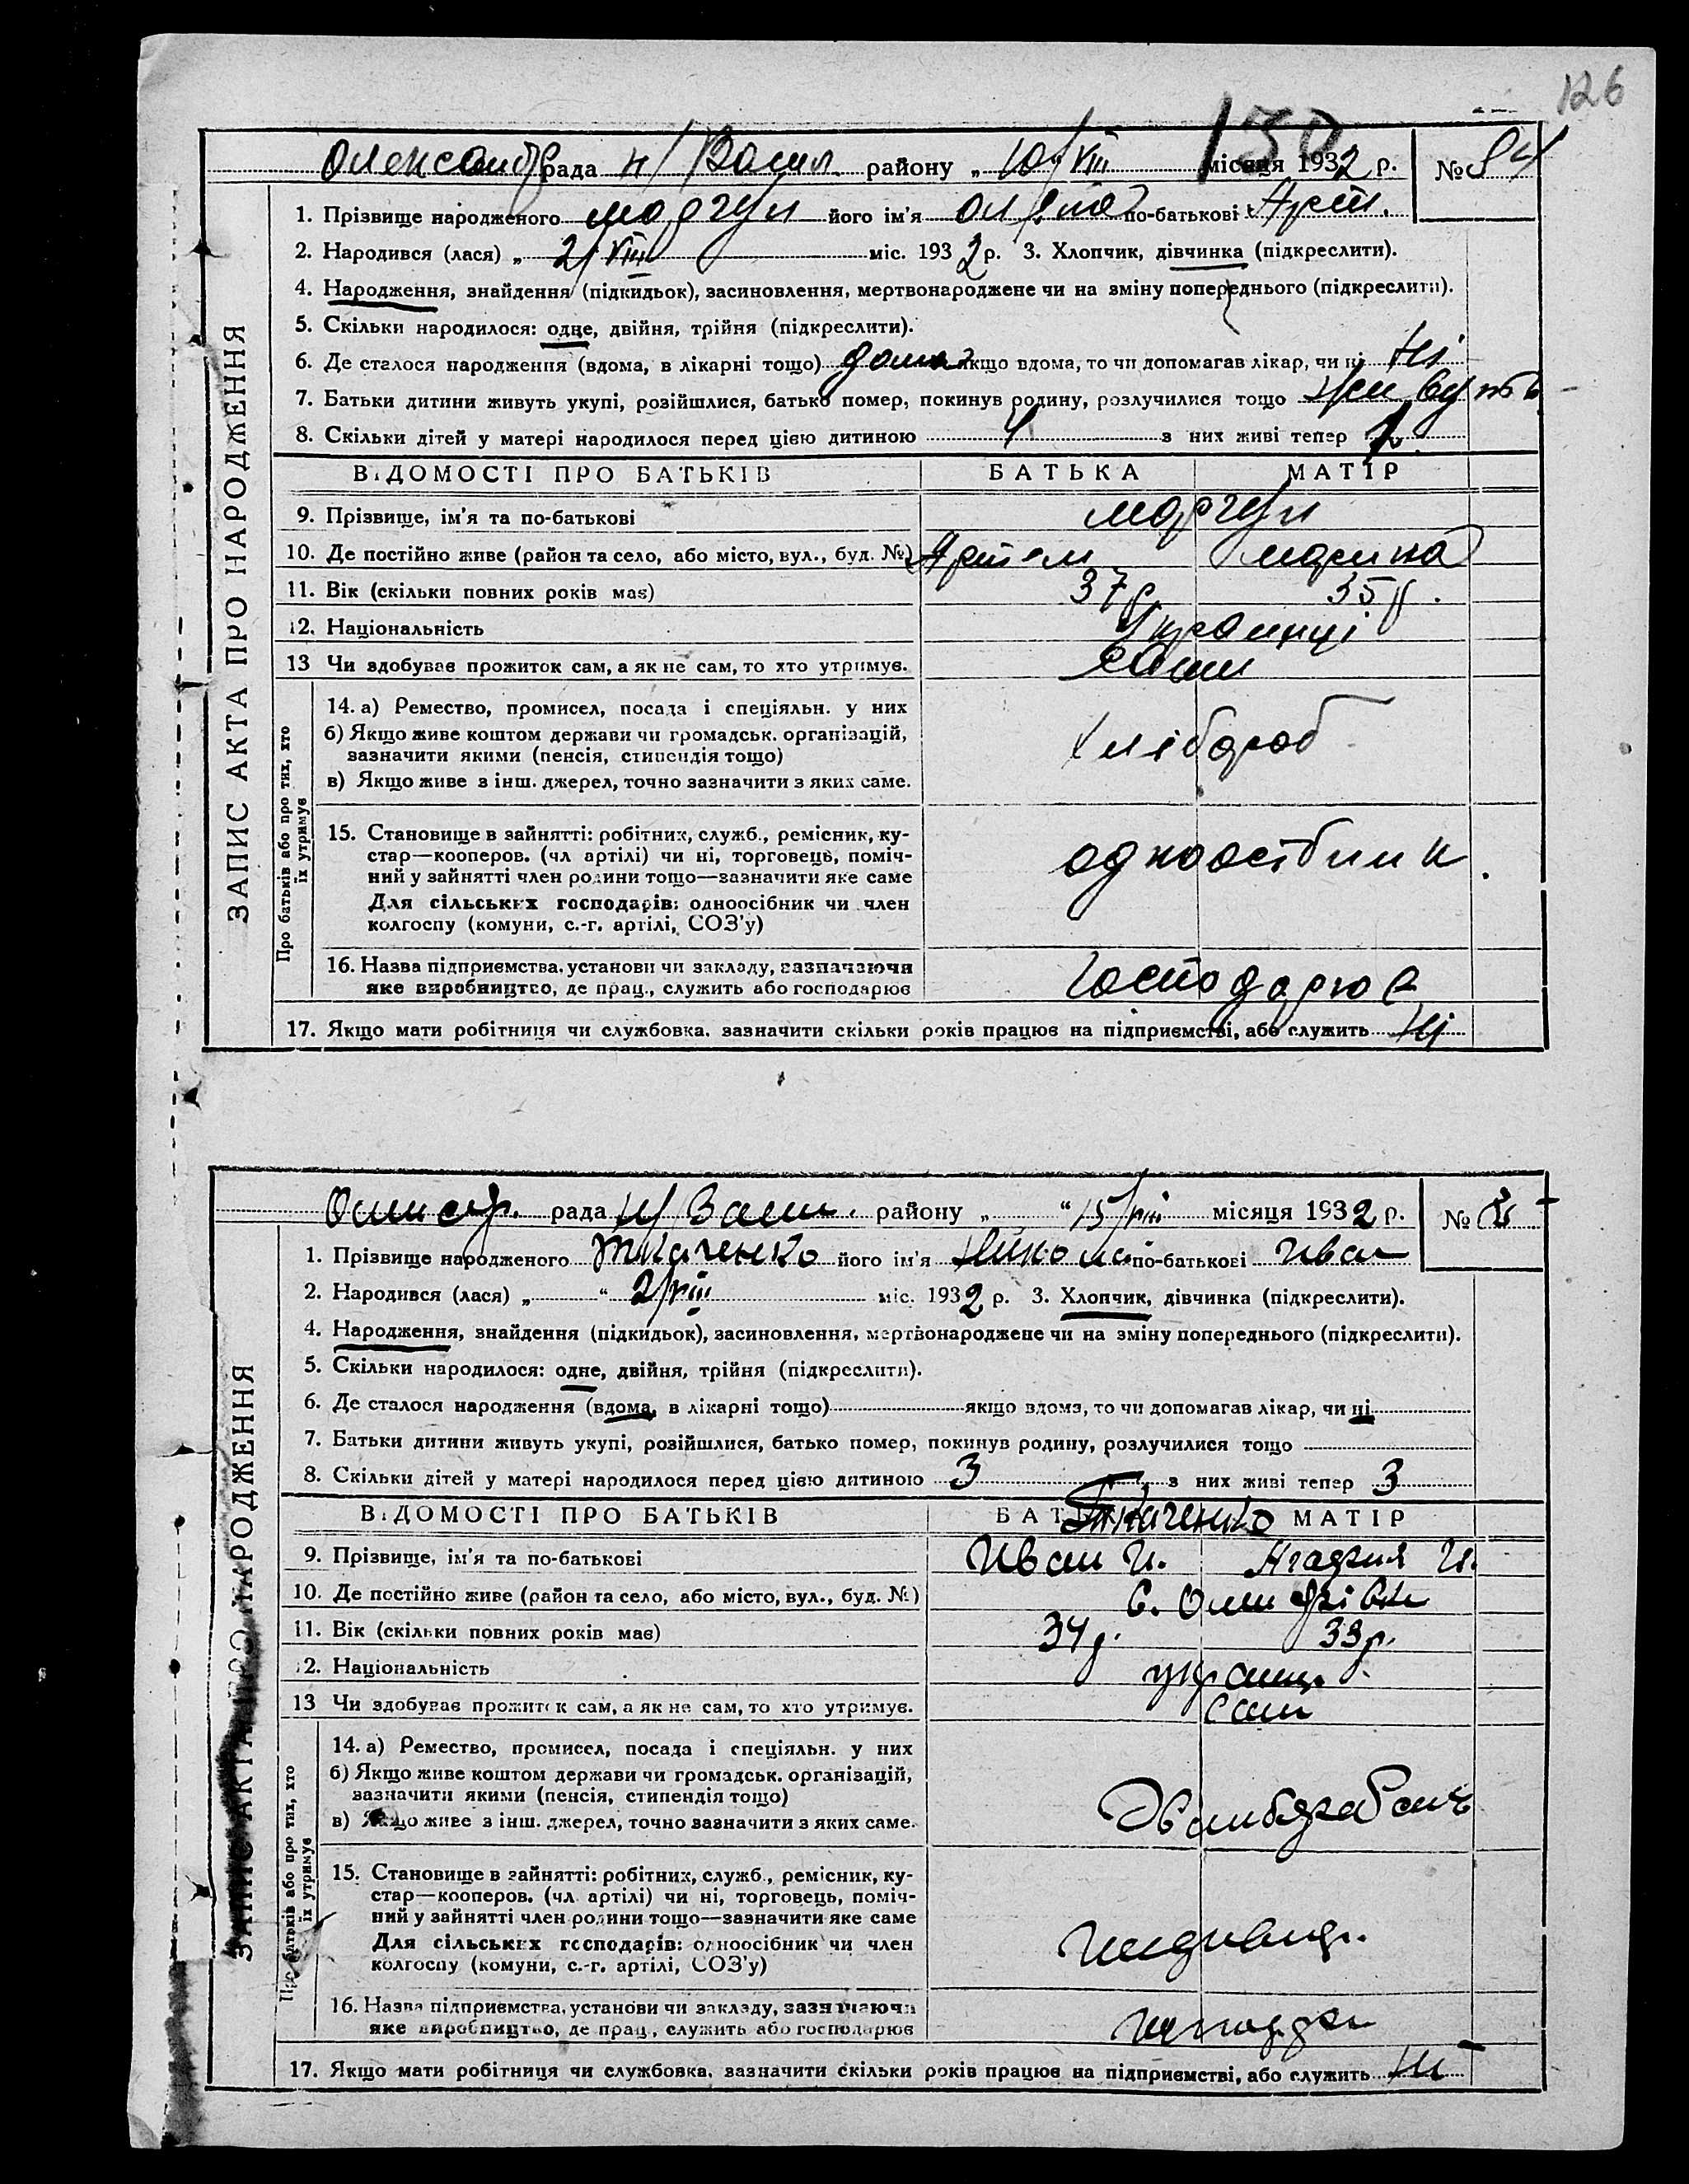 126
130
Олександр рада Н/Васил. району „10/VIII місяця 1932 р. № 84
1. Прізвище народженого Моргун його ім'я по-батькові Арт.
2. Народився (лася) „ 2/VIII міс. 1932 р. 3. Хлопчик, дівчинка (підкреслити).
4. Народження, знайдення (підкидьок), засиновлення, мертвонароджене чи на зміну попереднього (підкреслити).
5. Скільки народилося: одне, двійня, трійня (підкреслити).
6. Де сталося народження (вдома, в лікарні тощо) дома якщо вдома, то чи допомагав лікар, чи ні ні
7. Батьки дитини живуть укупі, розійшлися, батько помер, покинув родину, розлучилися тощо живуть
8. Скільки дітей у матері народилося перед цією дитиною 4 з них живі тепер
ЗАПИС АКТА ПРО НАРОДЖЕННЯ
ВІДОМОСТІ ПРО БАТЬКІВ БАТЬКА МАТІР
9. Прізвище, ім'я та по-батькові Моргун
10. Де постійно живе (район та село, або місто, вул., буд. №) Артем Марина
11. Вік (скільки повних років має) 37 р. 35 р.
12. Національність Українці
13 Чи здобував прожиток сам, а як не сам, то хто утримує. Сами
Про батьків або про тих, хто їх утримує
14. а) Ремество, промисел, посада і спеціяльн. у них
б) Якщо живе коштом держави чи громадськ. організацій,
зазначити якими (пенсія, стипендія тощо)
в) Якщо живе з інш. джерел, точно зазначити з яких саме.
Хлібороб
15. Становище в зайнятті: робітник, служб., ремісник, ку-
стар—кооперов. (чл артілі) чи ні, торговець, поміч-
ний у зайнятті член родини тощо—зазначити яке саме
Для сільських господарів: одноосібник чи член
колгоспу (комуни, с.-г. артілі, СОЗ'у)
одноосібник.
16. Назва підприємства, установи чи закладу, зазначаючи
яке виробництво, де прац., служить або господарює
господарює
17. Якщо мати робітниця чи службовка, зазначити скільки років працює на підприємстві, або служить ні
рада Н/Васил. району „ “ 15/VIII місяця 1932 р. №
1. Прізвище народженого Ткаченко його ім'я Микола по-батькові Иван
2. Народився (лася) „ “ 2/VIII міс. 1932 р. 3. Хлопчик, дівчинка (підкреслити).
4. Народження, знайдення (підкидьок), засиновлення, мертвонароджене чи на зміну попереднього (підкреслити).
5. Скільки народилося: одне, двійня, трійня (підкреслити).
6. Де сталося народження (вдома, в лікарні тощо) якщо вдома, то чи допомагав лікар, чи ні
7. Батьки дитини живуть укупі, розійшлися, батько помер, покинув родину, розлучилися тощо
8. Скільки дітей у матері народилося перед цією дитиною 3 з них живі тепер 3
ЗАПИС АКТА ПРО НАРОДЖЕННЯ
ВІДОМОСТІ ПРО БАТЬКІВ БАТЬКА Ткаченко МАТІР
9. Прізвище, ім'я та по-батькові Иван И. Агафия И.
10. Де постійно живе (район та село, або місто, вул., буд. №) с.
11. Вік (скільки повних років має) 34 р. 33 р.
12. Національність украинц.
13 Чи здобував прожиток сам, а як не сам, то хто утримує. сами
Про батьків або про тих, хто їх утримує
14. а) Ремество, промисел, посада і спеціяльн. у них
б) Якщо живе коштом держави чи громадськ. організацій,
зазначити якими (пенсія, стипендія тощо)
в) Якщо живе з інш. джерел, точно зазначити з яких саме.
15. Становище в зайнятті: робітник, служб., ремісник, ку-
стар—кооперов. (чл артілі) чи ні, торговець, поміч-
ний у зайнятті член родини тощо—зазначити яке саме
Для сільських господарів: одноосібник чи член
колгоспу (комуни, с.-г. артілі, СОЗ'у)
16. Назва підприємства, установи чи закладу, зазначаючи
яке виробництво, де прац., служить або господарює
17. Якщо мати робітниця чи службовка, зазначити скільки років працює на підприємстві, або служить ні